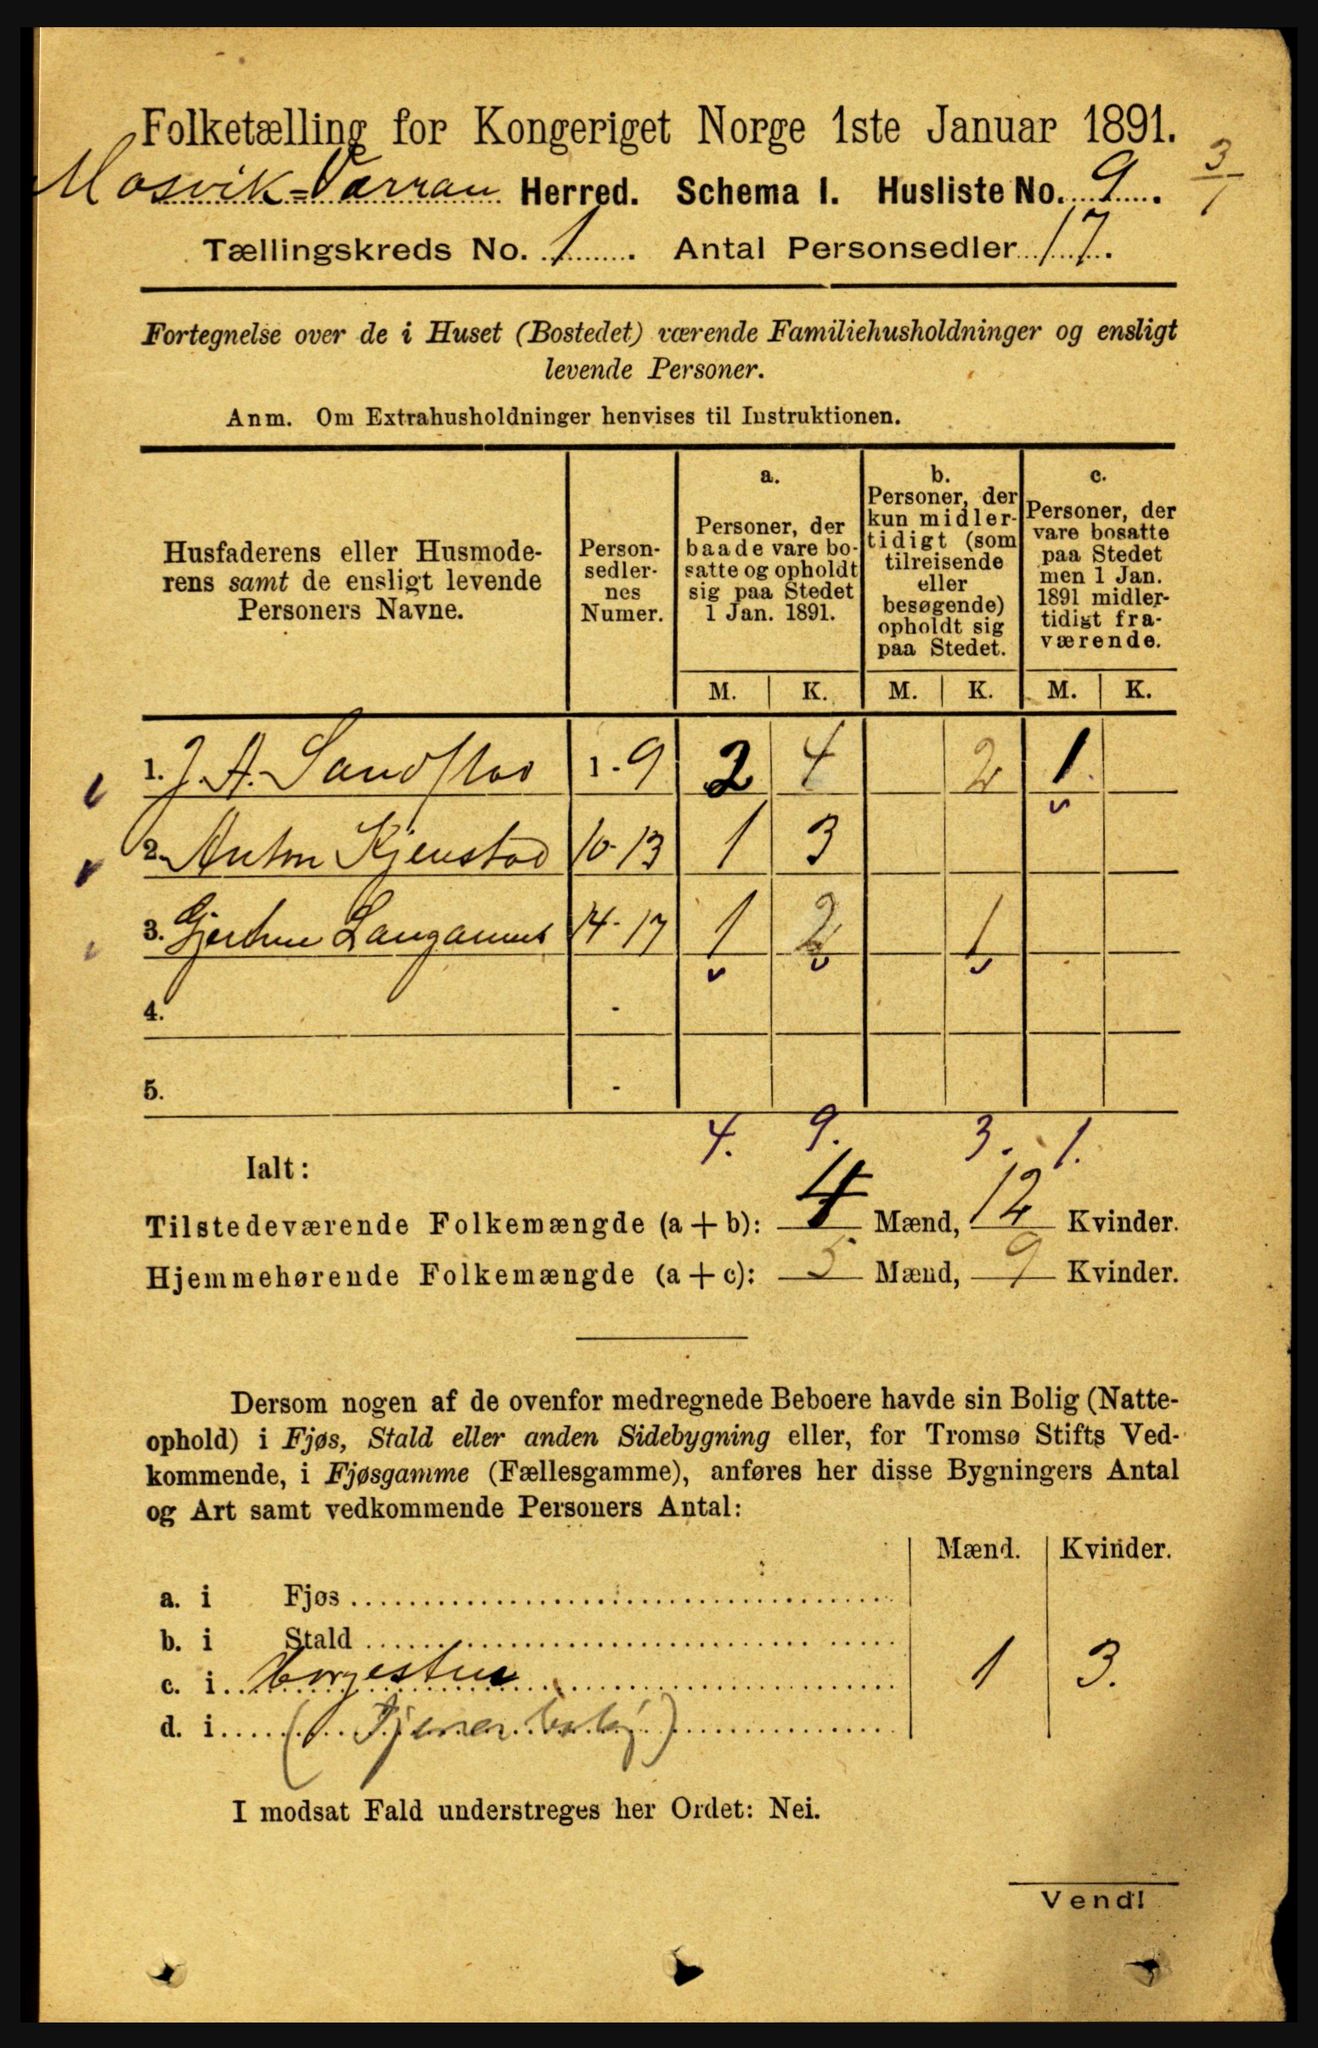 Folketælling for Kongeriget Norge 1ste Januar 1891.
Mosvik=Værran Herred. Schema I. Husliste No. 9. 3/1
Tællingskreds No. 1. Antal Personsedler 17.
Fortegnelse over de i Huset (Bostedet) værende Familiehusholdninger og ensligt
levende Personer.
Anm. Om Extrahusholdninger henvises til Instruktionen.
Husfaderens eller Husmode-
rens samt de ensligt levende
Personers Navne.
Person-
sedler-
nes
Numer.
a.
Personer, der
baade vare bo-
satte og opholdt
sig paa Stedet
1 Jan. 1891.
b.
Personer, der
kun midler-
tidigt (som
tilreisende
eller
besøgende)
opholdt sig
paa Stedet.
c.
Personer, der
vare bosatte
paa Stedet
men 1 Jan.
1891 midler-
tidigt fra-
værende.
M. K. M. K. M. K.
1. J. A. Sandstad 1 - 9 2 4 2 1
2. Anton Kjenstad 10-13 1 3
3. Langamus 14-17 1 2 1
4. -
5. -
4. 9. 3. 1.
Ialt:
Tilstedeværende Folkemængde (a + b): 4 Mænd, 12 Kvinder.
Hjemmehørende Folkemængde (a + c): 5 Mænd, 9 Kvinder.
Dersom nogen af de ovenfor medregnede Beboere havde sin Bolig (Natte-
ophold) i Fjøs, Stald eller anden Sidebygning eller, for Tromsø Stifts Ved-
kommende, i Fjøsgamme (Fællesgamme), anføres her disse Bygningers Antal
og Art samt vedkommende Personers Antal:
Mænd. Kvinder.
a. i Fjøs
b. i Stald
c. i Borgestue 1 3.
d. i
I modsat Fald understreges her Ordet: Nei.
Vend!